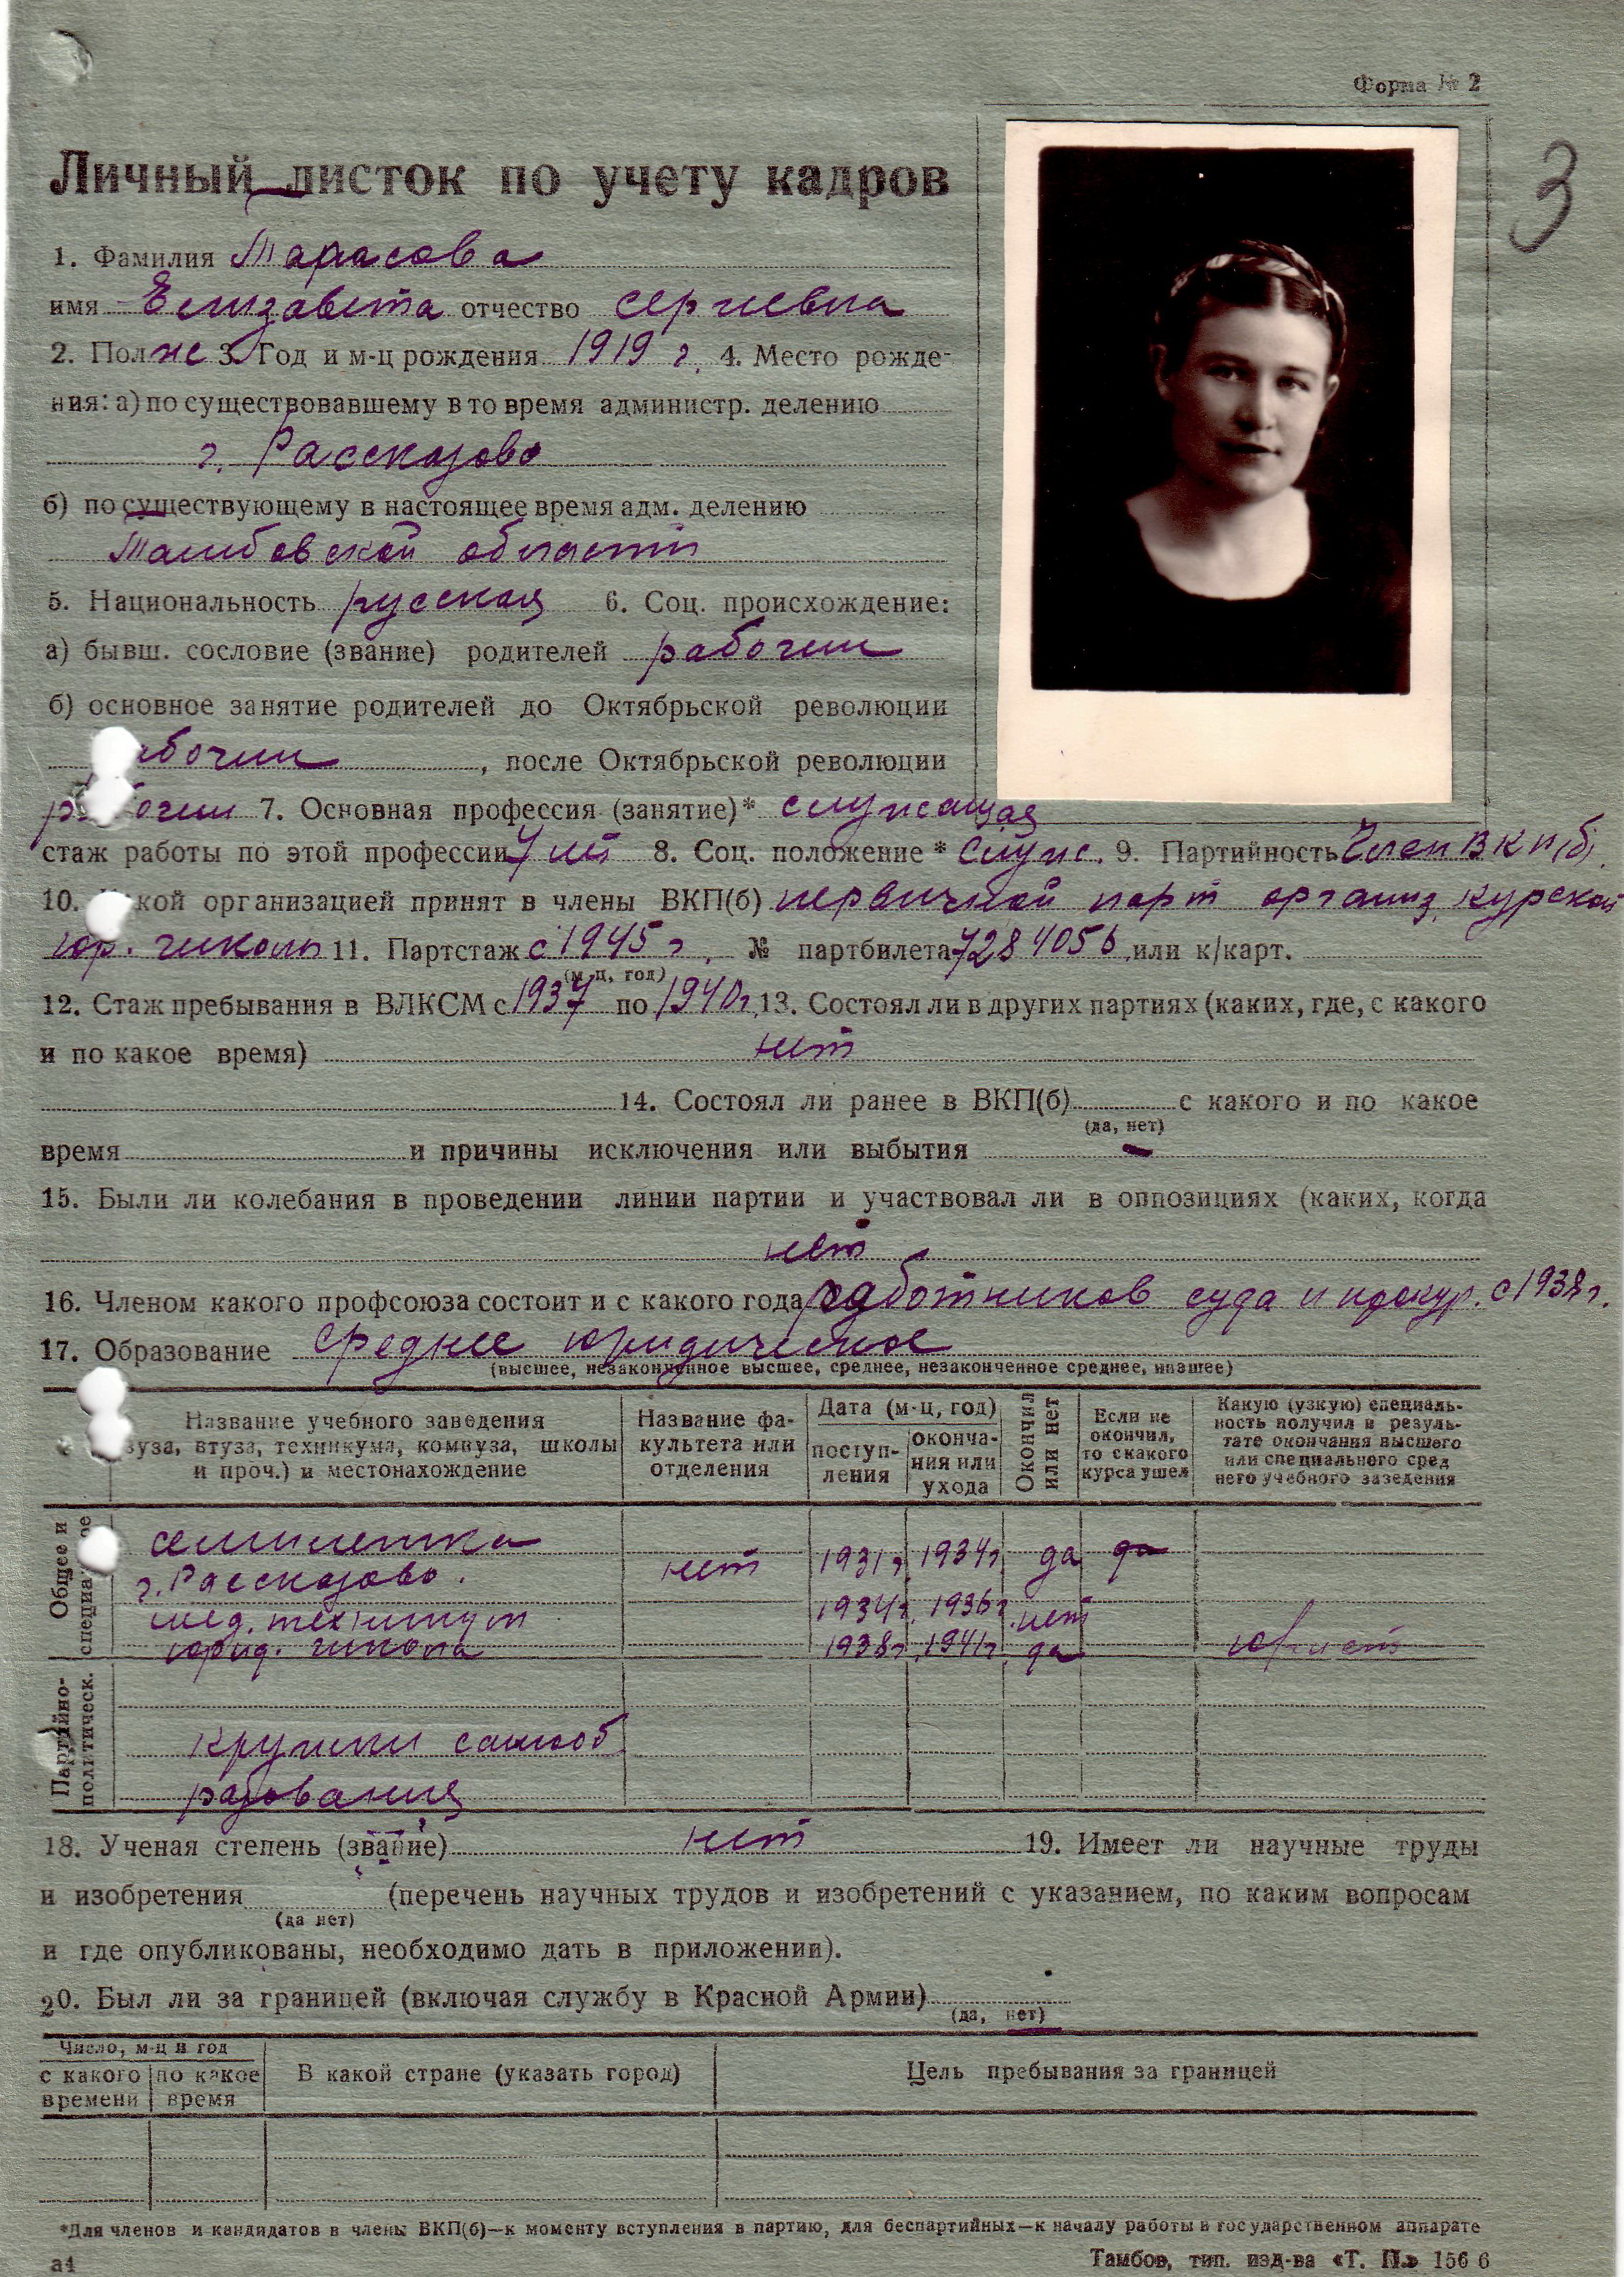 Форма № 2
3
Личный листок по учету кадров
1. Фамилия Тарасова
имя Елизавета отчество Сергиевна
2. Пол же 3. Год и м-ц рождения 1919 г. 4. Место рожде-
ния: а) по существовавшему в то время администр. делению
г. Рассказово
б) по существующему в настоящее время адм. делению
Тамбовской области
5. Национальность русская 6. Соц. происхождение:
а) бывш. сословие (звание) родителей рабочии
б) основное занятие родителей до Октябрьской революции
рабочии, после Октябрьской революции
рабочии 7. Основная профессия (занятие)* служащая
стаж работы по этой профессии 7 лет 8. Соц. положение* служ. 9. Партийность Член ВКП(б).
10. Какой организацией принят в члены ВКП(б) первичной парт организ. курской
юр. школы 11. Партстаж с 1945 г. № партбилета 7284056 или к/карт.
(м-ц, год)
12. Стаж пребывания в ВЛКСМ с 1937 по 1940г. 13. Состоял ли в других партиях (каких, где, с какого
и по какое время) нет
14. Состоял ли ранее в ВКП(б) с какого и по какое
(да, нет)
время и причины исключения или выбытия -
15. Были ли колебания в проведении линии партии и участвовал ли в оппозициях (каких, когда
нет
16. Членом какого профсоюза состоит и с какого года работников суда и прокур. с 1938 г.
17. Образование среднее юридическое
(высшее, незаконченное высшее, среднее, незаконченное среднее, низшее)
Название учебного заведения
(вуза, втуза, техникума, комвуза, школы
и проч.) и местонахождение
Название фа-
культета или
отделения
Дата (м-ц, год)
поступ-
ления
оконча-
ния или
ухода
Окончил
или нет
Если не
окончил,
то с какого
курса ушел
Какую (узкую) специаль-
ность получил в резуль-
тате окончания высшего
или специального сред
него учебного заведения
Общее и
специальное
семилетка
г. Рассказово. нет 1931г. 1934г. да да
мед. техникум 1934г. 1936г. нет
юрид. школа 1938г. 1941г. да юрист
Партийно-
политическ.
кружки самооб
разования
18. Ученая степень (звание) нет 19. Имеет ли научные труды
и изобретения (перечень научных трудов и изобретений с указанием, по каким вопросам
(да нет)
и где опубликованы, необходимо дать в приложении).
20. Был ли за границей (включая службу в Красной Армии)
(да, нет)
Число, м-ц и год
с какого
времени
по какое
время
В какой стране (указать город)
Цель пребывания за границей
*Для членов и кандидатов в члены ВКП(б)—к моменту вступления в партию, для беспартийных—к началу работы в государственном аппарате
а4
Тамбов, тип. изд-ва «Т. П.» 156 6